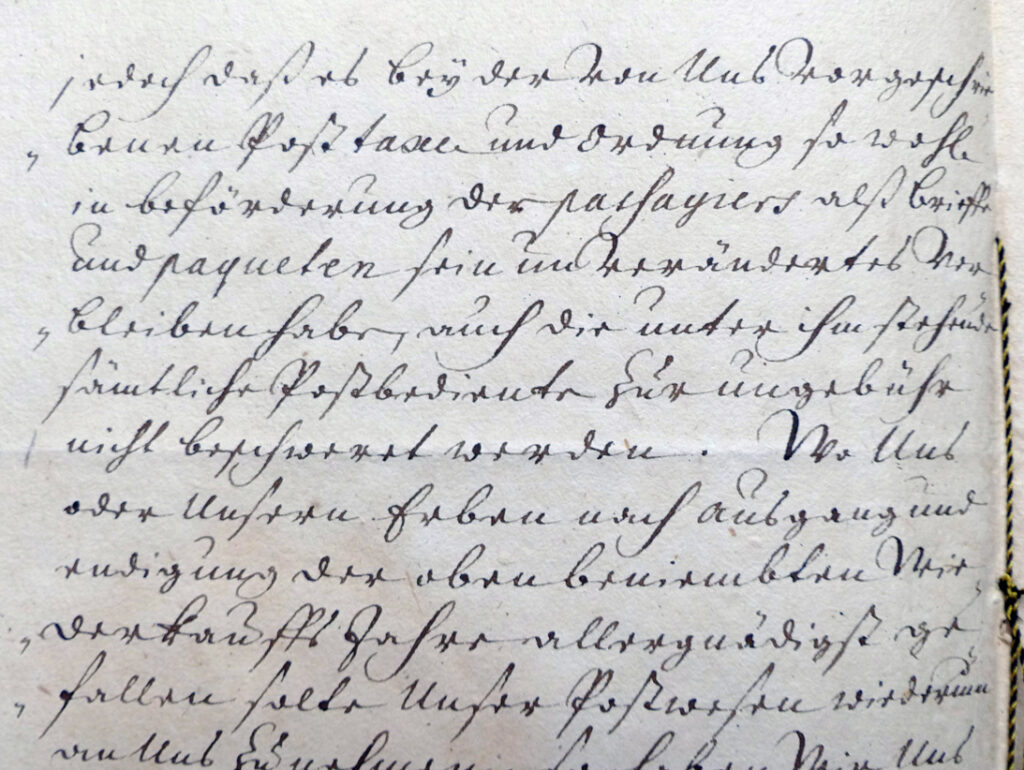 jedoch daß es bey der von Uns vorgeschrie
„ benen Post taxe und Ordnung so wohl
in beförderung der passagiers alß brieffe
und paqueten sein unverändertes Ver
„ bleiben habe, auch die unter ihm stehende
sämtliche Postbediente zur ungebühr
nicht beschweret werden. Wo Uns
oder Unsern Erben nach Ausgang und
endigung der oben beniembten Wie„
„ derkauffs Jahre allergnädigst ge„
„ fallen solte Unser Postwesen wiederum
an Uns zu nehmen, so haben Wir Uns